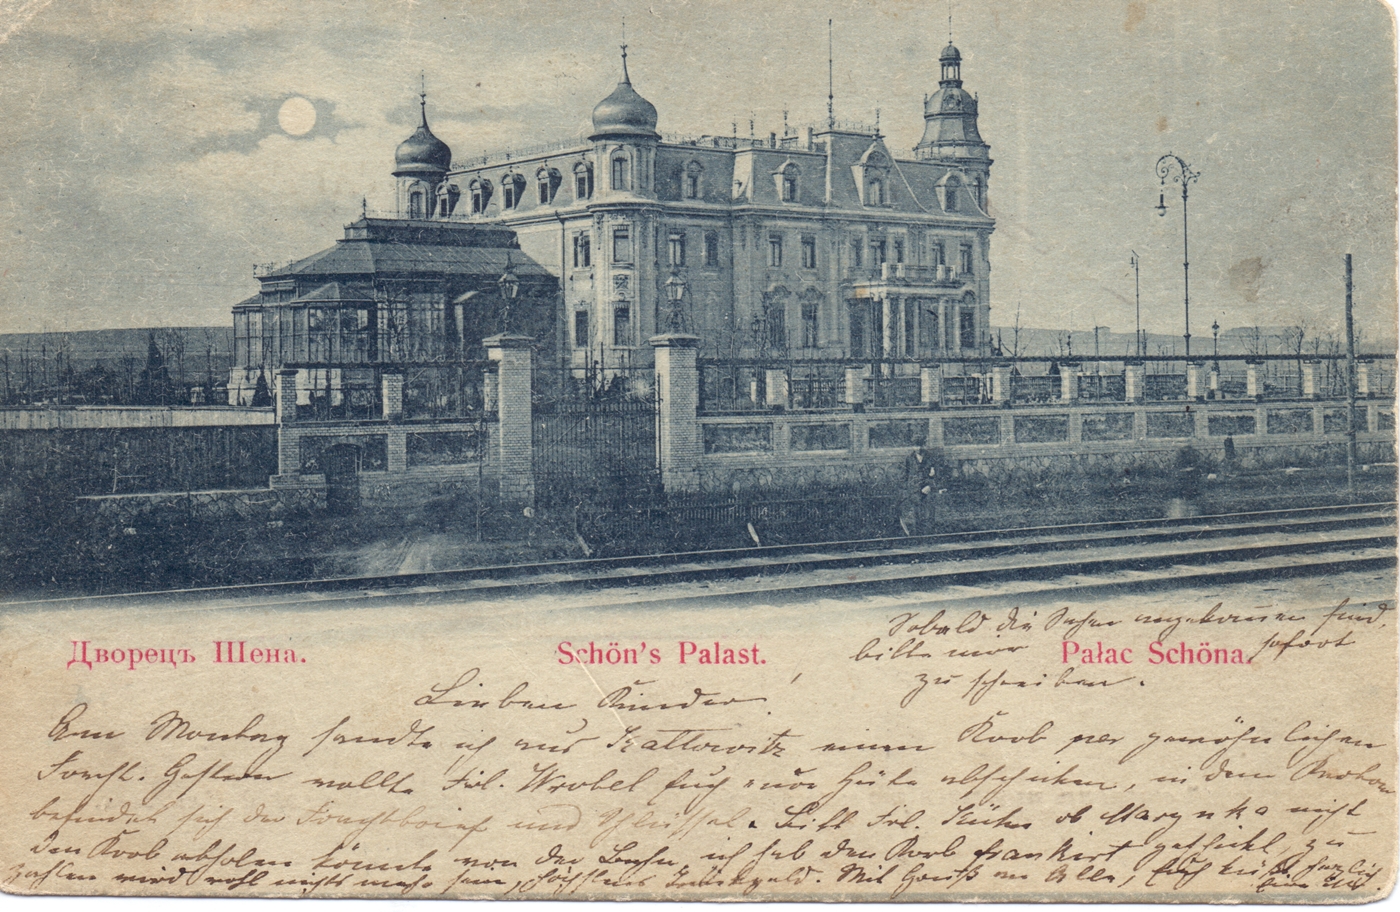 Дворецъ Шена.
Schön's Palast.
Pałac Schöna.
Sobald die Sachen angekommen sind,
bitte mir sofort
zu schreiben.
Lieben Kinder!
Am Montag sandte ich aus Kattowitz einen Korb per gewöhnlichen
Fracht. Gestern wollte Frl. Wrobel Euch zwei Hüte abschicken, in dem
befindet sich der Frachtbrief und Schlüssel. Bitte Frl. ob Marynka nicht
den Korb abholen könnte von der Bahn, ich hab den Korb frankirt geschickt, zu
zahlen wird wohl nichts mehr sein, höchstens. Mit Gruß an Alle, Euch küßt herzlich